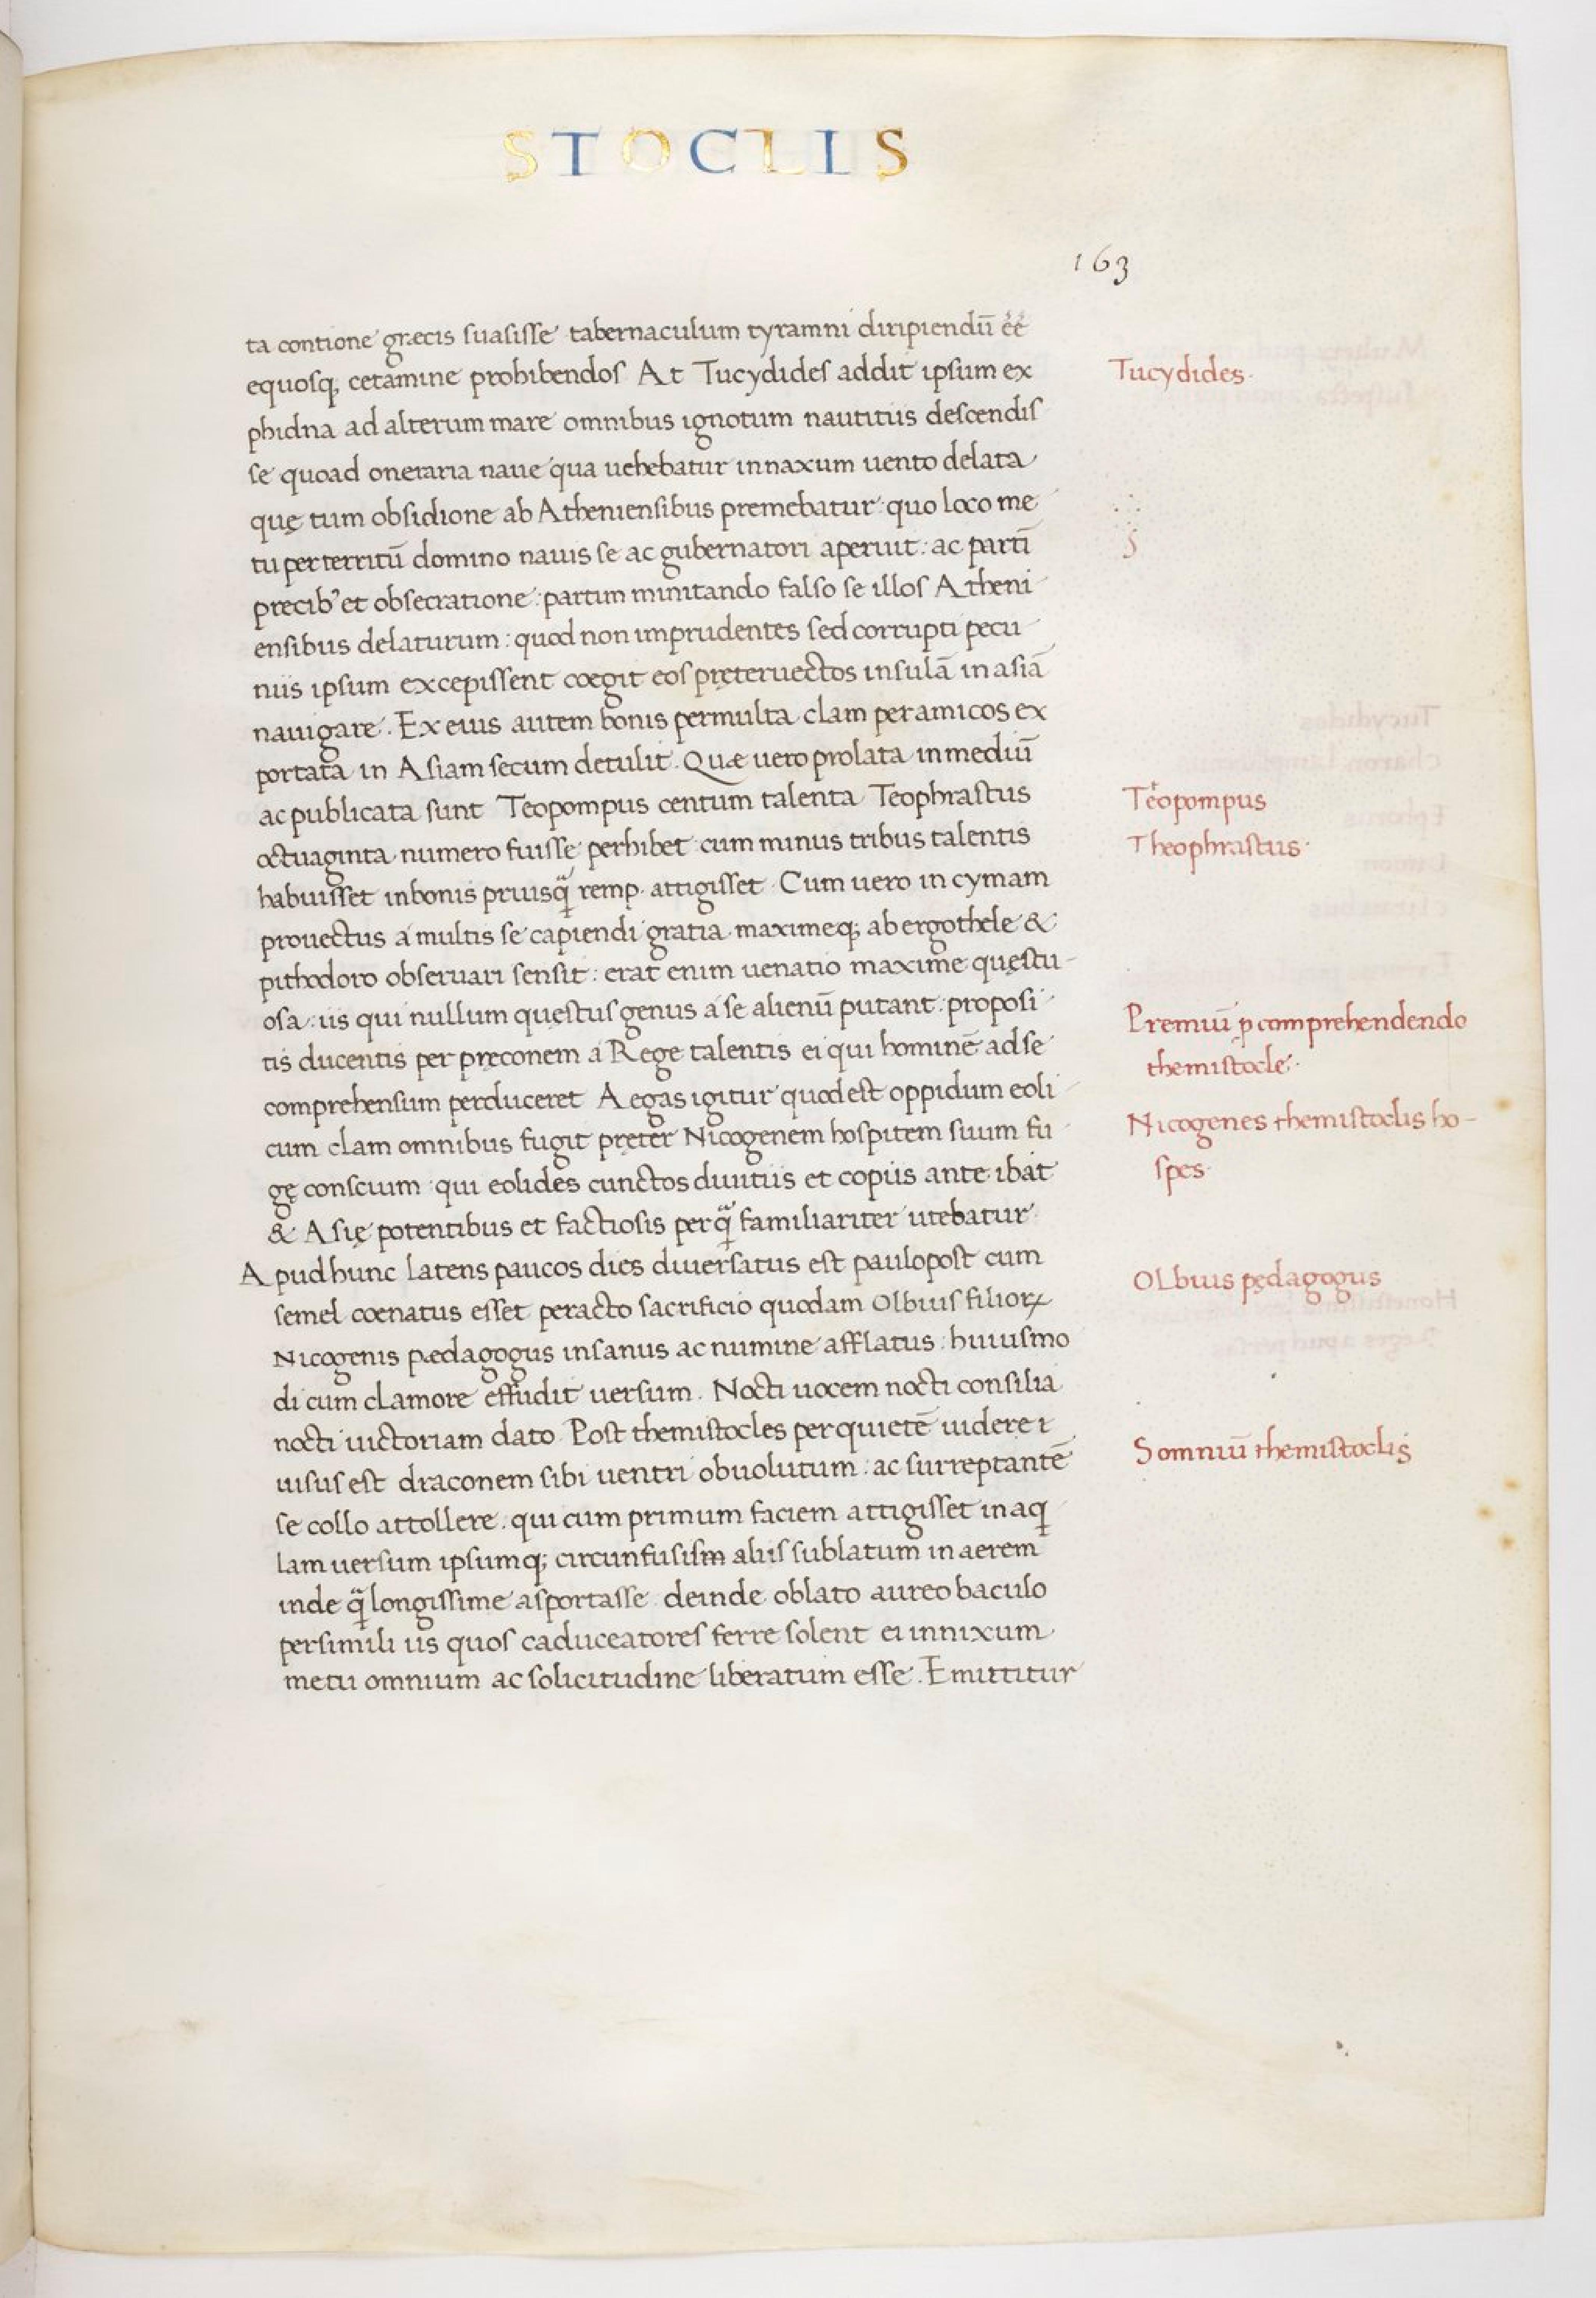 STOCLIS
163
ta contione græcis suasisse tabernaculum tyramni diripiendū eē
equosq; cetamine prohibendos At Tucydides addit ipsum ex
phidna ad alterum mare omnibus ignotum nautitiis descendis
se quoad oneraria naue qua uehebatur in naxum uento delata
quę tum obsidione ab Atheniensibus premebatur: quo loco me
tu perterritū domino nauis se ac gubernatori aperuit: ac parti̅
precib⁹ et obsecratione: partim minitando falso se illos Atheni
ensibus delaturum: quod non imprudentes sed corrupti pecu
niis ipsum excepissent coegit eos pręteruectos insulā in asiā
nauigare. Ex eius autem bonis permulta clam per amicos ex
portata in Asiam secum detulit. Quæ uero prolata in mediū
ac publicata sunt Teopompus centum talenta Teophrastus
octuaginta numero fuisse perhibet cum minus tribus talentis
habuisset in bonis priusq̃ remp. attigisset. Cum uero in cymam
prouectus a multis se capiendi gratia maximeq; ab ergothele &
pithodoro obseruari sensit: erat enim uenatio maxime quęstu
osa: iis qui nullum quęstus genus a se alienū putant: proposi
tis ducentis per pręconem a Rege talentis ei qui hominē ad se
comprehensum perduceret Aegas igitur quod est oppidum eoli
cum clam omnibus fugit pręter Nicogenem hospitem suum fu
gę conscium: qui eolides cunctos diuitiis et copiis ante ibat
& Asię potentibus et factiosis perq̃ familiariter utebatur.
Apud hunc latens paucos dies diuersatus est paulo post cum
semel coenatus esset peracto sacrificio quodam Olbius filioꝝ
Nicogenis pædagogus insanus ac numine afflatus: huiusmo
di cum clamore effudit uersum. Nocti uocem nocti consilia
nocti uictoriam dato. Post themistocles per quietē uidere
uisus est draconem sibi uentri obuolutum: ac surreptantē
se collo attollere: qui cum primum faciem attigisset in aq̣
lam uersum ipsumq; circunfusis aliis sublatum in aerem
inde q̃ longissime asportasse deinde oblato aureo baculo
persimili iis quos caduceatores ferre solent ei innixum
metu omnium ac solicitudine liberatum esse. Emittitur
Tucydides.
Teopompus
Theophrastus.
Premiū ꝓ comprehendendo
themistocle.
Nicogenes themistoclis ho-
spes.
Olbius pędagogus
Somniū themistoclis